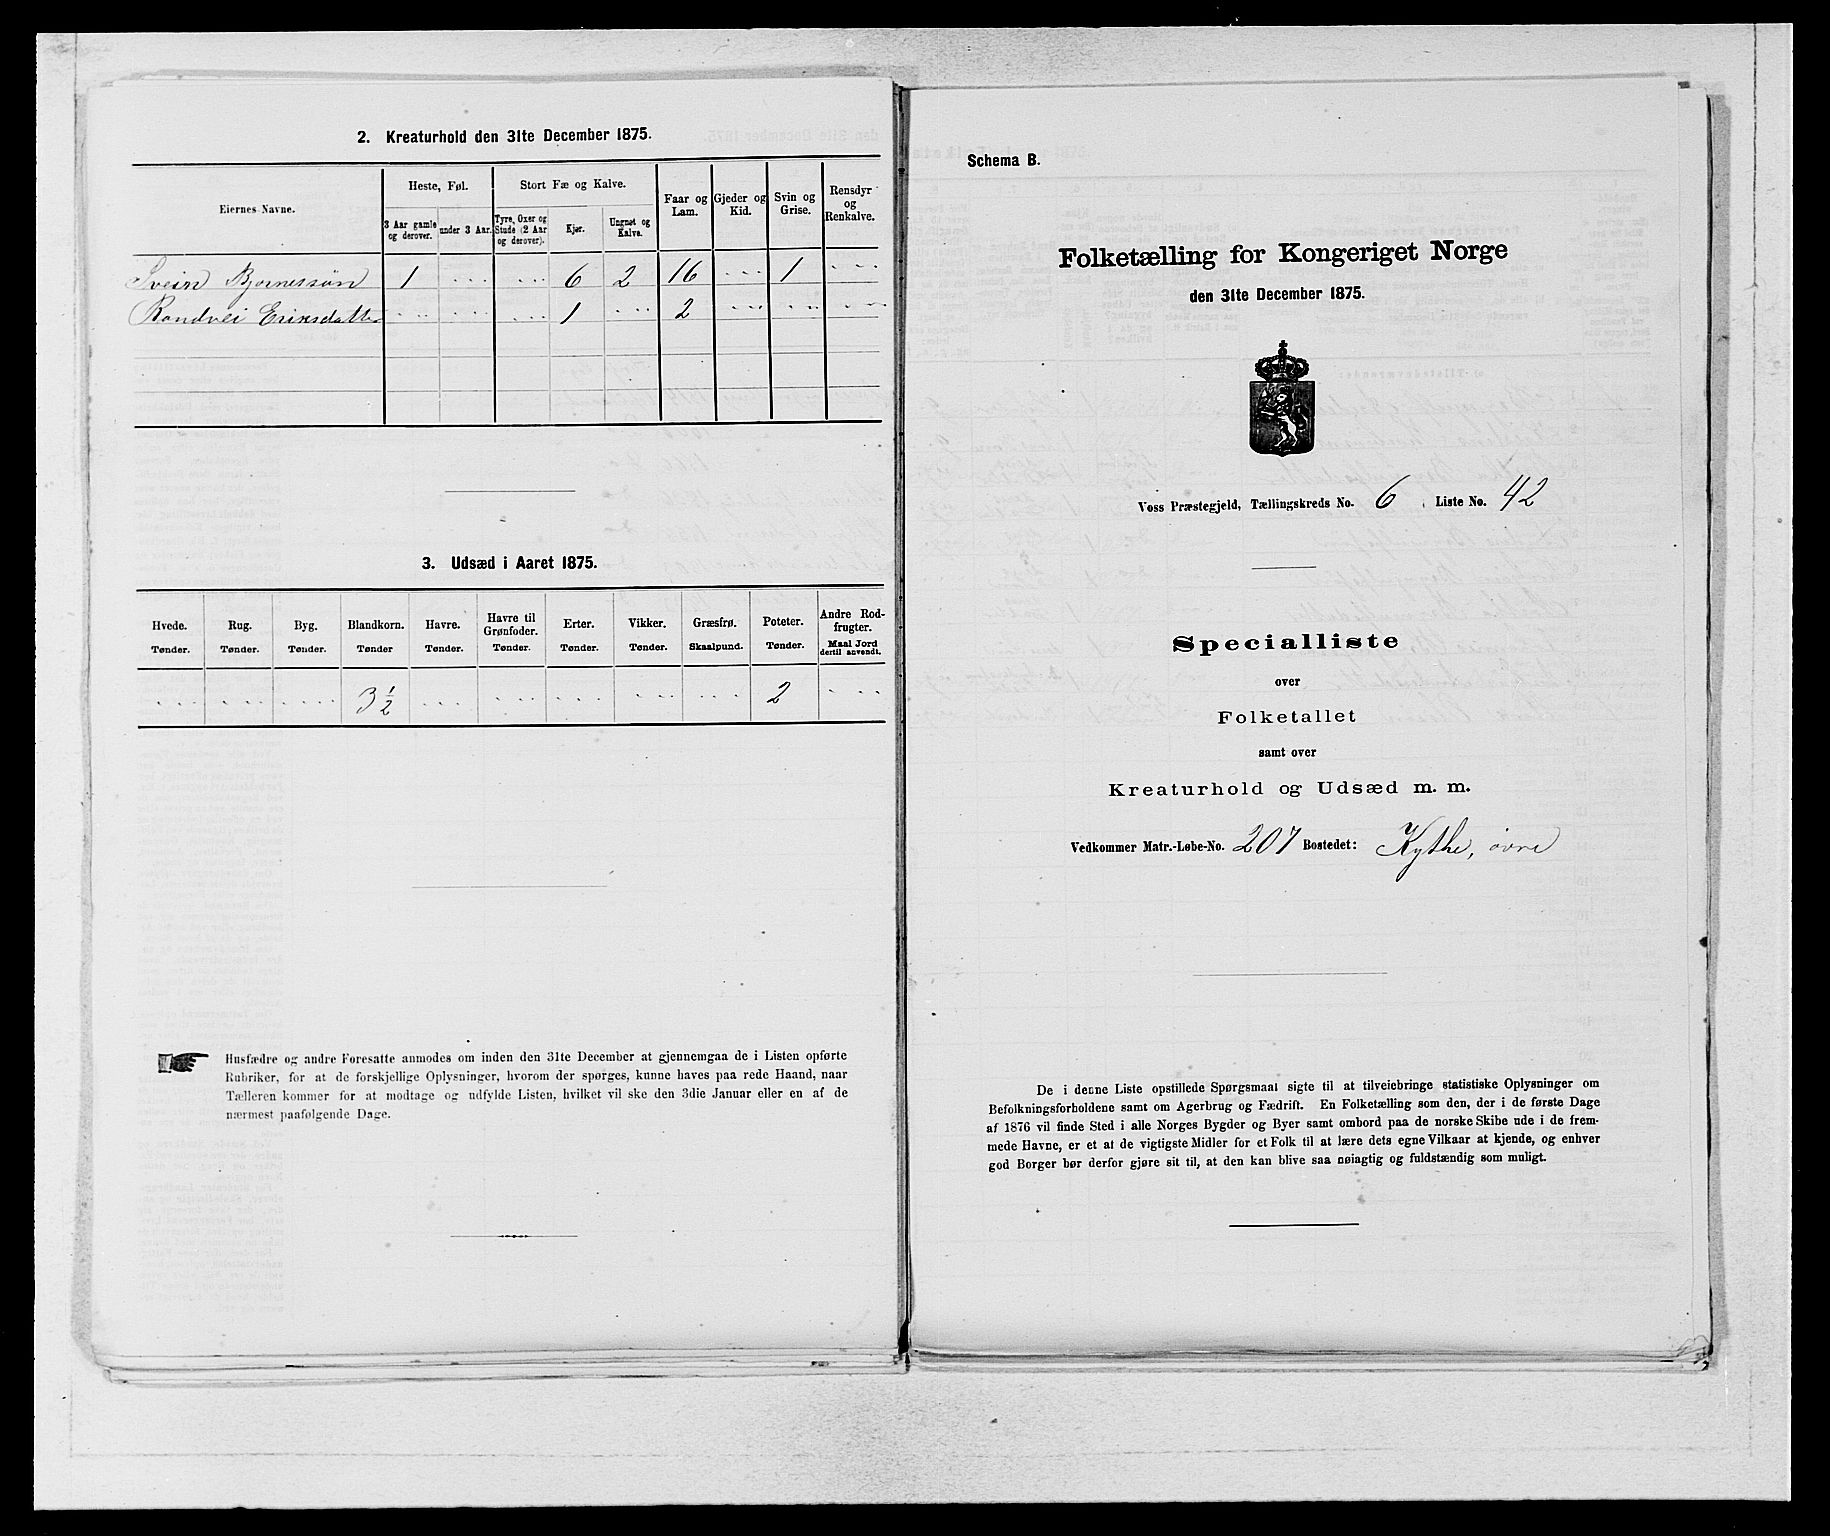 2. Kreaturhold den 31te December 1875.
Eiernes Navne.
Heste, Føl.
Stort Fæ og Kalve.
Faar og Lam.
Gjeder og Kid.
Svin og Grise.
Rensdyr og Renkalve.
3 Aar gamle og derover.
under 3 Aar.
Tyre, Oxer og Stude (2 Aar og derover).
Kjør.
Ungnøt og Kalve.
Svein Bjørnessøn 1 6 2 16 1
Randvei Eriksdatter 1 2
3. Udsæd i Aaret 1875.
Hvede. Rug. Byg. Blandkorn. Havre. Havre til Grønfoder. Erter. Vikker. Græsfrø. Poteter. Andre Rodfrugter.
Tønder. Tønder. Tønder. Tønder Tønder. Tønder. Tønder. Tønder. Skaalpund. Tønder. Maal Jord dertil anvendt.
3 1/2 2
Husfædre og andre Foresatte anmodes om inden den 31te December at gjennemgaa de i Listen opførte
Rubriker, for at de forskjellige Oplysninger, hvorom der spørges, kunne haves paa rede Haand, naar
Tælleren kommer for at modtage og udfylde Listen, hvilket vil ske den 3die Januar eller en af de
nærmest paafølgende Dage.
Schema B.
Folketælling for Kongeriget Norge
den 31te December 1875.
Voss Præstegjeld, Tællingskreds No. 6, Liste No. 42
Specialliste
over
Folketallet
samt over
Kreaturhold og Udsæd m. m.
Vedkommer Matr.-Løbe-No. 207 Bostedet: Kythe, øvre
De i denne Liste opstillede Spørgsmaal sigte til at tilveiebringe statistiske Oplysninger om
Befolkningsforholdene samt om Agerbrug og Fædrift. En Folketælling som den, der i de første Dage
af 1876 vil finde Sted i alle Norges Bygder og Byer samt ombord paa de norske Skibe ude i de frem-
mede Havne, er et af de vigtigste Midler for et Folk til at lære dets egne Vilkaar at kjende, og enhver
god Borger bør derfor gjøre sit til, at den kan blive saa nøiagtig og fuldstændig som muligt.